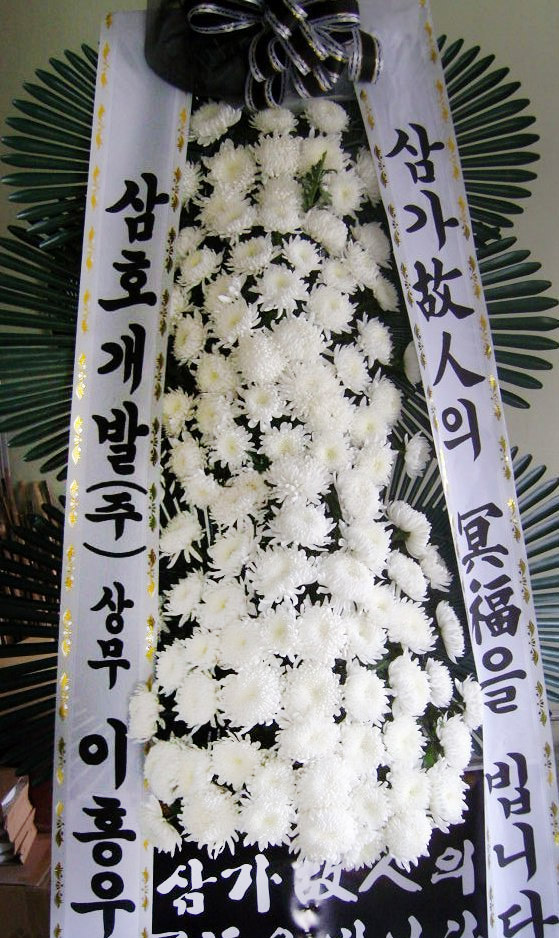 삼가故人의 冥福을 빕니다
삼호개발(주) 상무 이흥우
삼가故人의